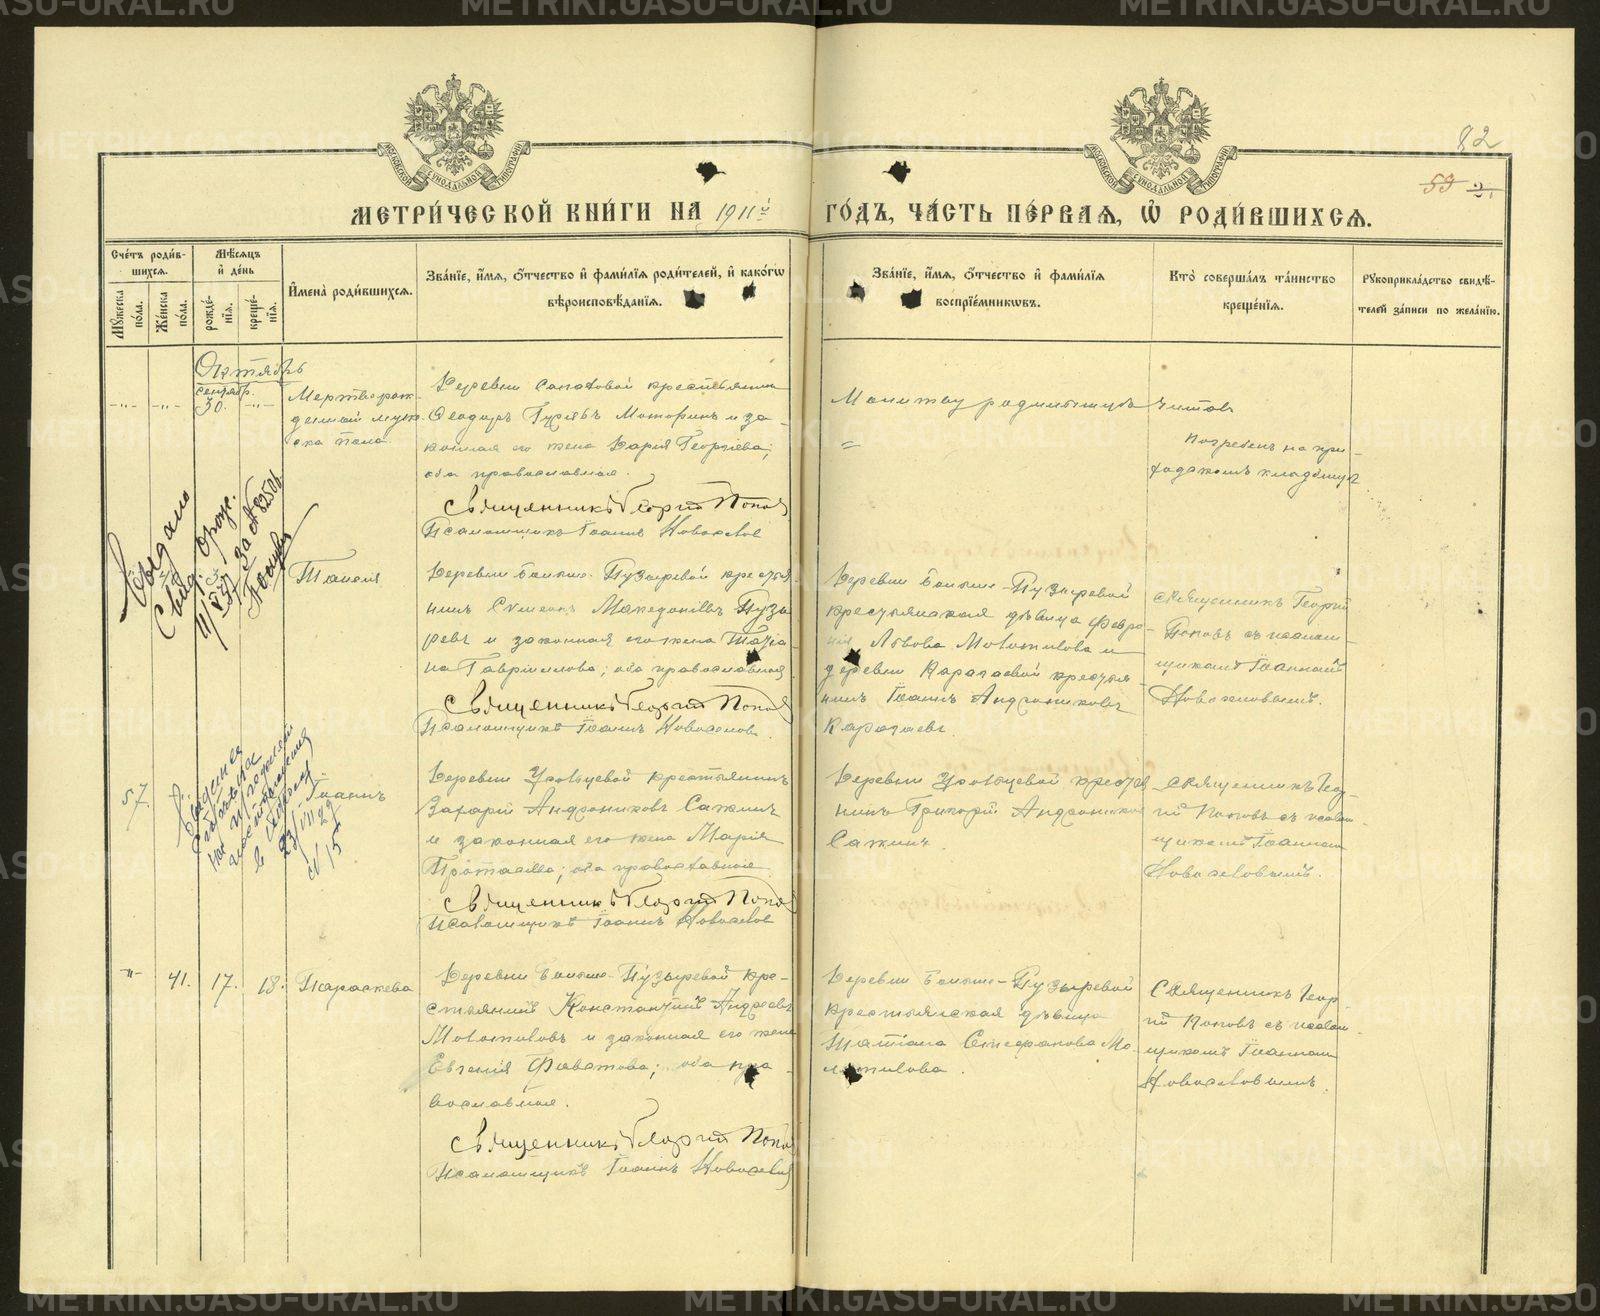 82
53
МЕТРИ́ЧЕСКОЙ КНИ́ГИ НА 1911й ГО́ДЪ, ЧА́СТЬ ПЕ́РВАЯ, Ѿ РОДИ́ВШИХСЯ.
Сче́тъ роди́в-
шихся.
Мѣ́сяцъ
и҆ де́нь
И҆мена̀ роди́вшихся.
Зва́нїе, и҆́мя, ѻ҆́тчество и҆ фами́лїя роди́телей, и҆ како́гѡ
вѣроисповѣ́данїя.
Зва́нїе, и҆́мя, ѻ҆́тчество и҆ фами́лїя
воспрїе́мникѡвъ.
Кто̀ соверша́лъ та́инство
креще́нїя.
Рꙋкоприкла́дство свидѣ́-
телей за́писи по жела́нїю.
Мꙋ́жеска
по́ла.
Же́нска
по́ла.
рожде́-
нїя.
креще́-
нїя.
Октябрь
сентябр.
30.
Мертворож-
денный муже-
ска пола.
Деревни крестьянинъ
Ѳеодоръ Гурьевъ Моторинъ и за-
конная его жена Дарія Георгіева;
оба православные.
Священникъ Георгій Поповъ
Псаломщикъ Іоаннъ Новоселов
Молитву родительницѣ читалъ
Погребенъ на при-
ходскомъ кладбищѣ
Выдано
свид. о рожд.
за № 8250
Таисія
Деревни Больше-Пузыревой крестья-
нинъ Сѵмеонъ Македоніевъ Пузы-
ревъ и законная его жена Татіа-
на Гавріилова; оба православные
Священникъ Георгій Поповъ
Псаломщикъ Іоаннъ Новоселов.
Деревни Больше-Пузыревой
крестьянская дѣвица Февро-
нія Львова Моложилова и
деревни Карагаевой крестья-
нинъ Іоаннъ Андрониковъ
Карагаевъ.
Священникъ Георгій
Поповъ съ псалом-
щикомъ Іоанномъ
Новоселовымъ.
57.
23/VII 29
№ 15
Іоаннъ
Деревни Усольцевой крестьянинъ
Захарій Андрониковъ Сажинъ
и законная его жена Марія
Протасьева; оба православные.
Священникъ Георгій Попов
Псаломщикъ Іоаннъ Новоселов
Деревни Усольцевой крестья
нинъ Григорій Андрониковъ
Сажинъ.
Священникъ Геор-
гій Поповъ съ псалом-
щикомъ Іоанномъ
Новоселовымъ.
-"- 41. 17. 18. Параскева
Деревни Больше-Пузыревой кре-
стьянинъ Константинъ Андреевъ
Моложиловъ и законная его жена
Евгенія Ѳавстова; оба пра-
вославные.
Священникъ Георгій Попо
Псаломщикъ Іоаннъ Новоселов
Деревни Больше-Пузыревой
крестьянская дѣвица
Татіана Стефанова Мо-
ложилова.
Священникъ Геор-
гій Поповъ съ псалом-
щикомъ Іоанномъ
Новоселовымъ.
METRIKI.GASO-URAL.RU